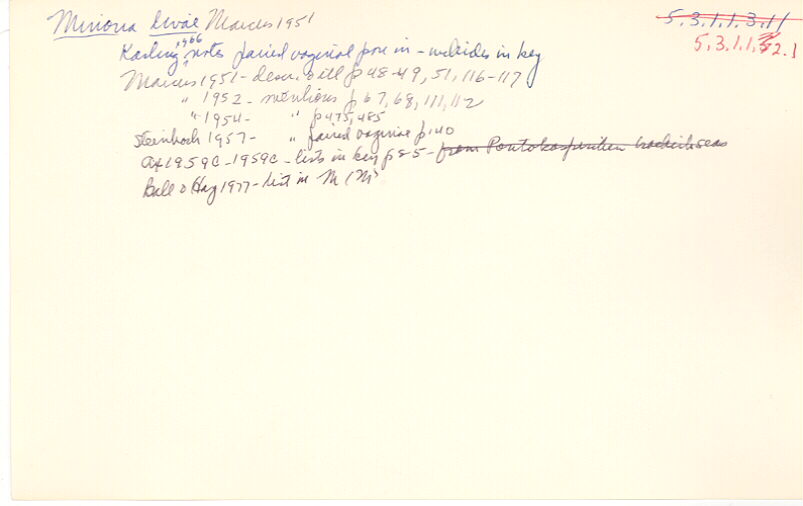 Minona evae Marcus 1951
5.3.1.1.3.11
5.3.1.1.2.1
Karling 1966 notes paired vaginal pore in - includes in key
Marcus 1951 - descr. & ill p 48-49, 51, 116-117
" 1952 - mentions p 67, 68, 111, 112
" 1954 - " p 475, 485
Steinbock 1957 - " paired vaginae p. 140
Ax 1959c - lists in key p 85 - from Pontokaspischen brackish seas
Ball & Hay 1977 - list in M (M)